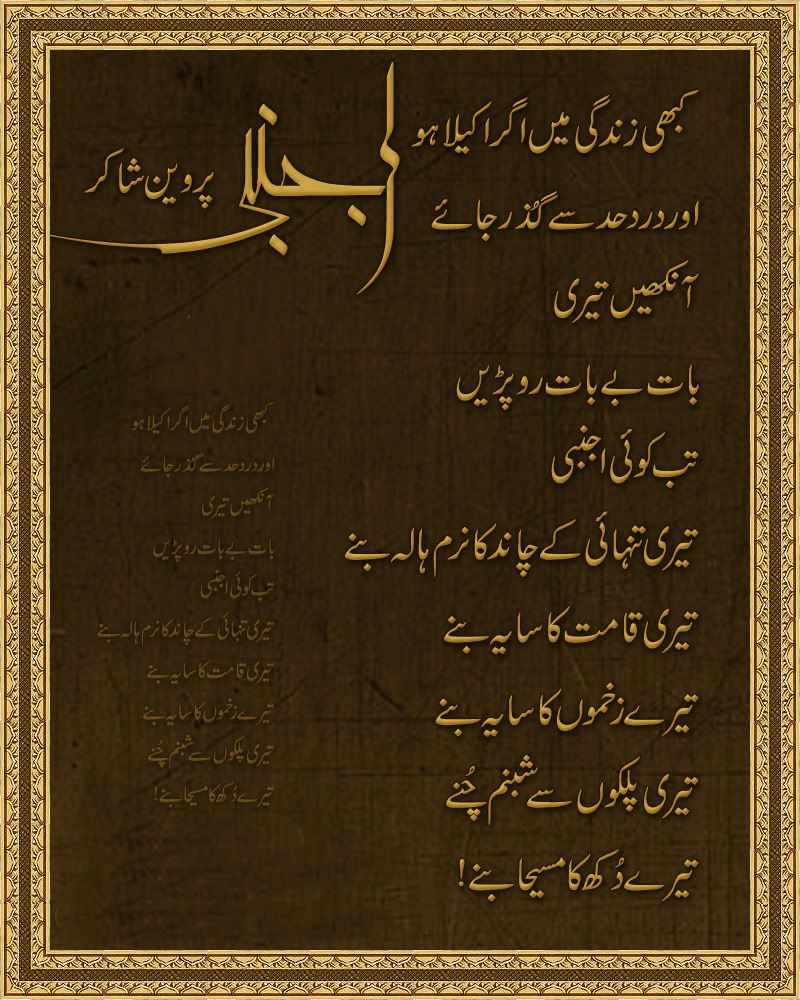 اجنبی
پروین شاکر
کبھی زندگی میں اگر اکیلا ہو
اور درد حد سے گُذر جائے
آنکھیں تیری
بات بے بات رو پڑیں
تب کوئی اجنبی
تیری تنہائی کے چاند کا نرم ہالہ بنے
تیری قامت کا سایہ بنے
تیرے زخموں کا سایہ بنے
تیری پلکوں سے شبنم چُنے
تیرے دُکھ کا مسیحا بنے!
کبھی زندگی میں اگر اکیلا ہو
اور درد حد سے گُذر جائے
آنکھیں تیری
بات بے بات رو پڑیں
تب کوئی اجنبی
تیری تنہائی کے چاند کا نرم ہالہ بنے
تیری قامت کا سایہ بنے
تیرے زخموں کا سایہ بنے
تیری پلکوں سے شبنم چُنے
تیرے دُکھ کا مسیحا بنے!